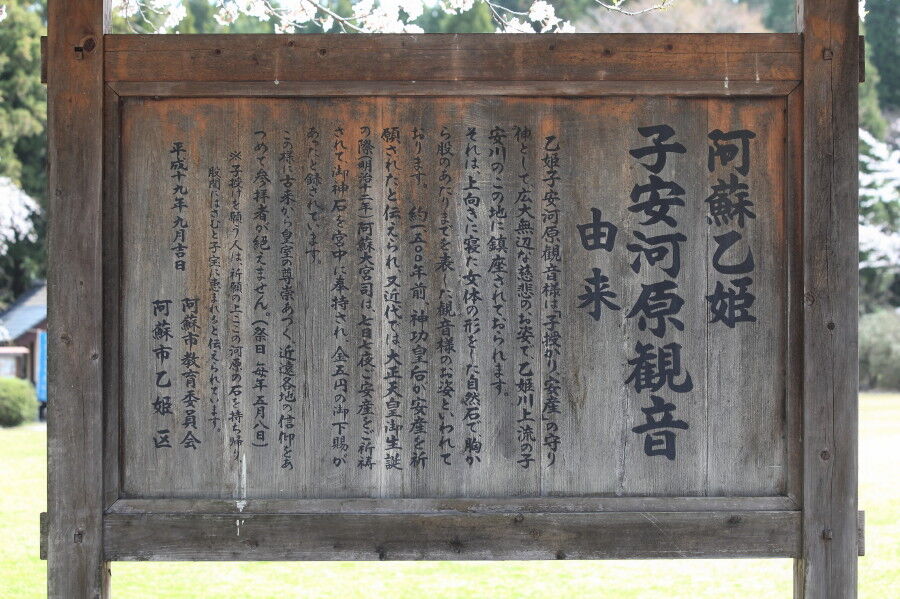 阿蘇乙姫
子安河原観音
由来
乙姫子安河原観音様は「子授かり」「安産」の守り
神として、広大無辺な慈悲のお姿で、乙姫川上流の子
安川のこの地に鎮座されておられます。
それは、上向きに寝た女体の形をした自然石で、胸か
ら股のあたりまでを表した観音様のお姿といわれて
おります。約一五〇〇年前、神功皇后が安産を祈
願されたと伝えられ、又近代では、大正天皇御生誕
の際(明治十二年)阿蘇大宮司は、七日七夜ご安産をご祈祷
されて御神石を宮中に奉持され、金五円の御下賜が
あったと録されています。
この様に古来から皇室の尊崇あつく、近遠各地の信仰をあ
つめて参拝者が絶えません。(祭日 毎年五月八日)
※子授けを願う人は、祈願の上ここの河原の石を持ち帰り
股間にはさむと子宝に恵まれると伝えられています。
平成十九年九月吉日
阿蘇市教育委員会
阿蘇市乙姫区